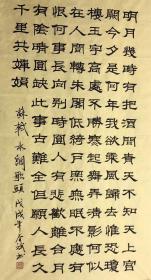 明月幾時有把酒問青天不知天上宮
闕今夕是何年我欲乘風歸去惟恐瓊
樓玉宇高處不勝寒起舞弄清影何似
在人間轉朱閣低綺戶照無眠不應有
恨何事長向別時圓人有悲歡離合月
有陰晴圓缺此事古難全但願人長久
千里共嬋娟
蘇軾水調歌頭戊戌年書